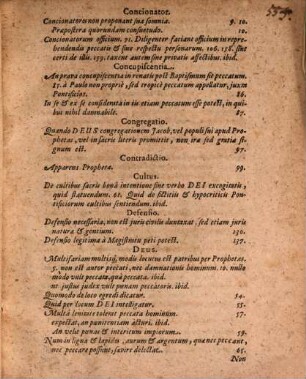 Concionator.
Concionatores non proponant sua somnia. 9. 10.
Præpostera quorundam consuetudo. 10.
Concionatorum officium. 91. Diligenter faciant officium in reprehendendis
peccatis & sine respectu personarum. 106. 138. sint
certi de illis. 139. caveant autem sine privatis affectibus. ibid.
Concupiscentia.
An prava concupiscentia in renatis post Baptismum sit peccatum.
57. à Paulo non propriè, sed tropicè peccatum appellatur, juxta
Pontificios. 86.
In se & ex se considerata in iis etiam peccatum esse potest, in quibus
nihil damnabile. 87.
Congregatio.
Quando DEUS congregationem Jacob, vel populi sui apud Prophetas,
vel in sacris literis promittit, non ira sed gratia signum
est. 97.
Contradictio.
Apparens Prophetæ. 99.
Cultus.
De cultibus sacris bonâ intentione sine verbo DEI excogitatis,
quid statuendum. 61. Quid de fictitiis & hypocriticis Pontificiorum
cultibus sentiendum. ibid.
Defensio.
Defensio necessaria, non est juris civilis duntaxat, sed etiam juris
naturæ & gentium. 130.
Defensio legitima à Magistratu peti potest. 137.
Deus.
Multifariam multisq; modis locutus est patribus per Prophetas.
5. non est autor peccati, nec damnationis hominum. 16. nullo
modo vult peccata, quâ peccata. ibid.
ut justus judex vult punam peccatoris. ibid.
Quomodo de loco egredi dicatur. 14.
Quid per locum DEI intelligatur. 15.
Multâ lenitate tolerat peccata hominum. 17.
expectat, an pœnitentiam acturi. ibid.
An velit pœnas & interitum impiorum. 59.
Num in lignâ & lapidem, aurum & argentum, quæ nec peccant,
nec peccare possunt, sævire delectat. 65.
Non